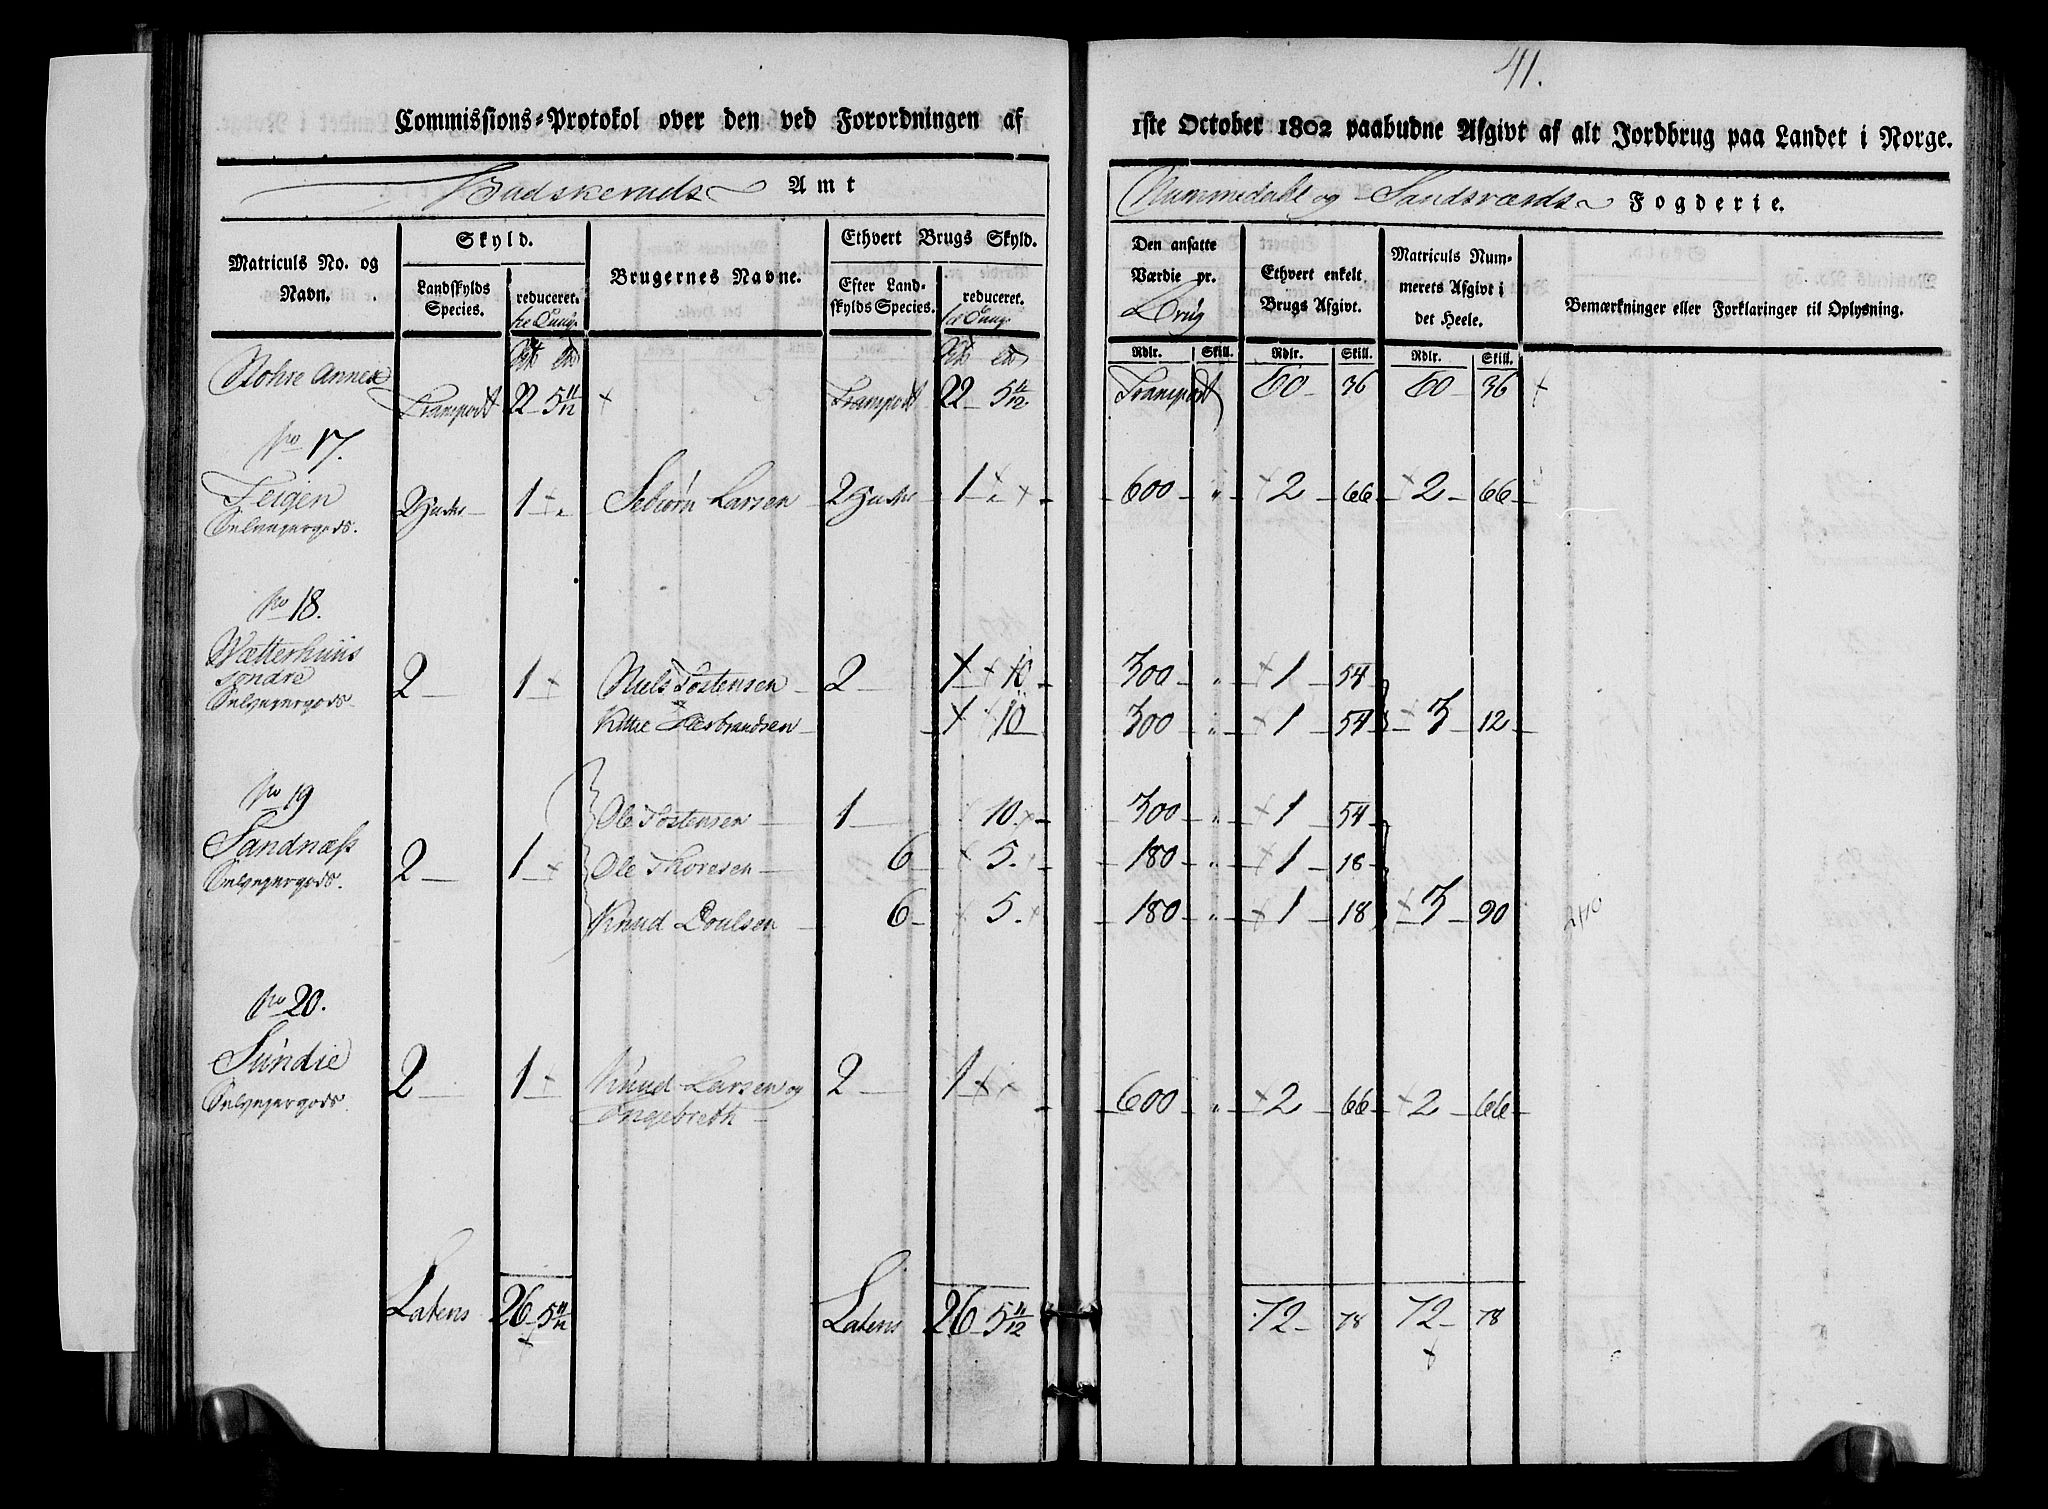 41.
Commissions-Protokol over den ved Forordningen af 1ste October 1802 paabudne Afgivt af alt Jordbrug paa Landet i Norge.
Budskeruds Amt
Nummedahl og Sandsværds Fogderie.
Matriculs No. og Navn.
Skyld.
Landskylds Species.
reduceret.
Brugernes Navne.
Ethvert Brugs Skyld.
Efter Landskylds Species.
reduceret.
Den ansatte Værdie pr. Brug
Ethvert enkelt Brugs Afgivt.
Matriculs Nummerets Afgivt i det Heele.
Bemærkninger eller Forklaringer til Oplysning.
Rdlr. Skill. Rdlr. Skill. Rdlr. Skill.
Nohre Annex
Transport 22 5 11/12 Transport 22 5 11/12 Transport 60 36 60 36
No 17.
Teigen 2 Huder 1 Sebiørn Larsen 2 Huder 1 600 " 2 66 2 66
Selveyergods.
No 18.
Wætterhuus
søndre 2 1 Niels Tostensen 2 10 300 " 1 54
Selveyergods Kittil Herbrandsen 10 300 " 1 54 3 12
No 19
Ole Tostensen 1 10. 300 " 1 54
Sandnæss 2 1 Ole Thoresen 6 5. 180 " 1 18
Selveyergods.
Knud Poulsen 6 5. 180 " 1 18 3 90 240
No 20.
Sundie 2 1 Knud Larsen og 2 1 600 " 2 66 2 66
Selveyergods. Engebreth
Latens 26 5 11/12 Latens 26 5 11/12 72 78 72 78